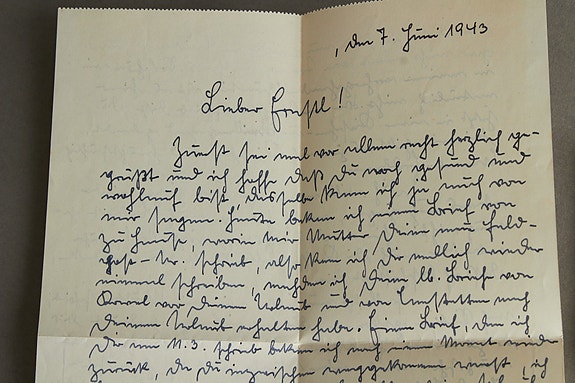 , den 7. Juni 1943
Lieber Ernstl!
Zuerst sei mal vor allem recht herzlich ge-
grüßt und ich hoffe daß Du noch gesund und
wohlauf bist. Dasselbe kann ich ja auch von
mir sagen. Heute bekam ich einen Brief von
zu Hause, worin mir Mutter Deine neue Feld-
post-Nr. schrieb, also kann ich Dir endlich wieder
einmal schreiben, nachdem ich Deine lb. Briefe von
vor Deinem Urlaub und von nach
Deinem Urlaub erhalten habe. Einen Brief, den ich
Dir am 11.3. schrieb bekam ich nach einem Monat wieder
zurück, da Du inzwischen weggekommen warst, ich